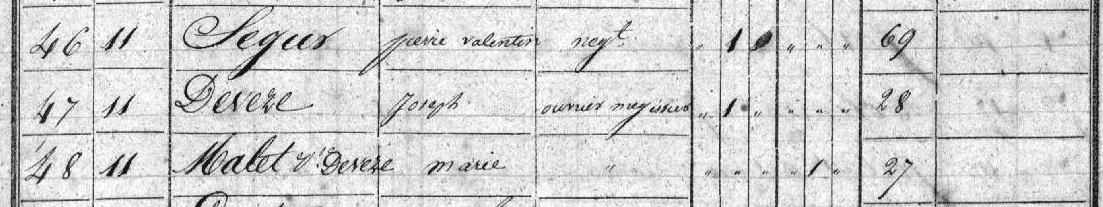 46 11 Segur pierre valentin negt. " 1 " " " 69
47 11 Deveze Joseph ouvrier megissier " 1 " " " " 28
48 11 Malet Deveze marie " " " " " 1 " 27